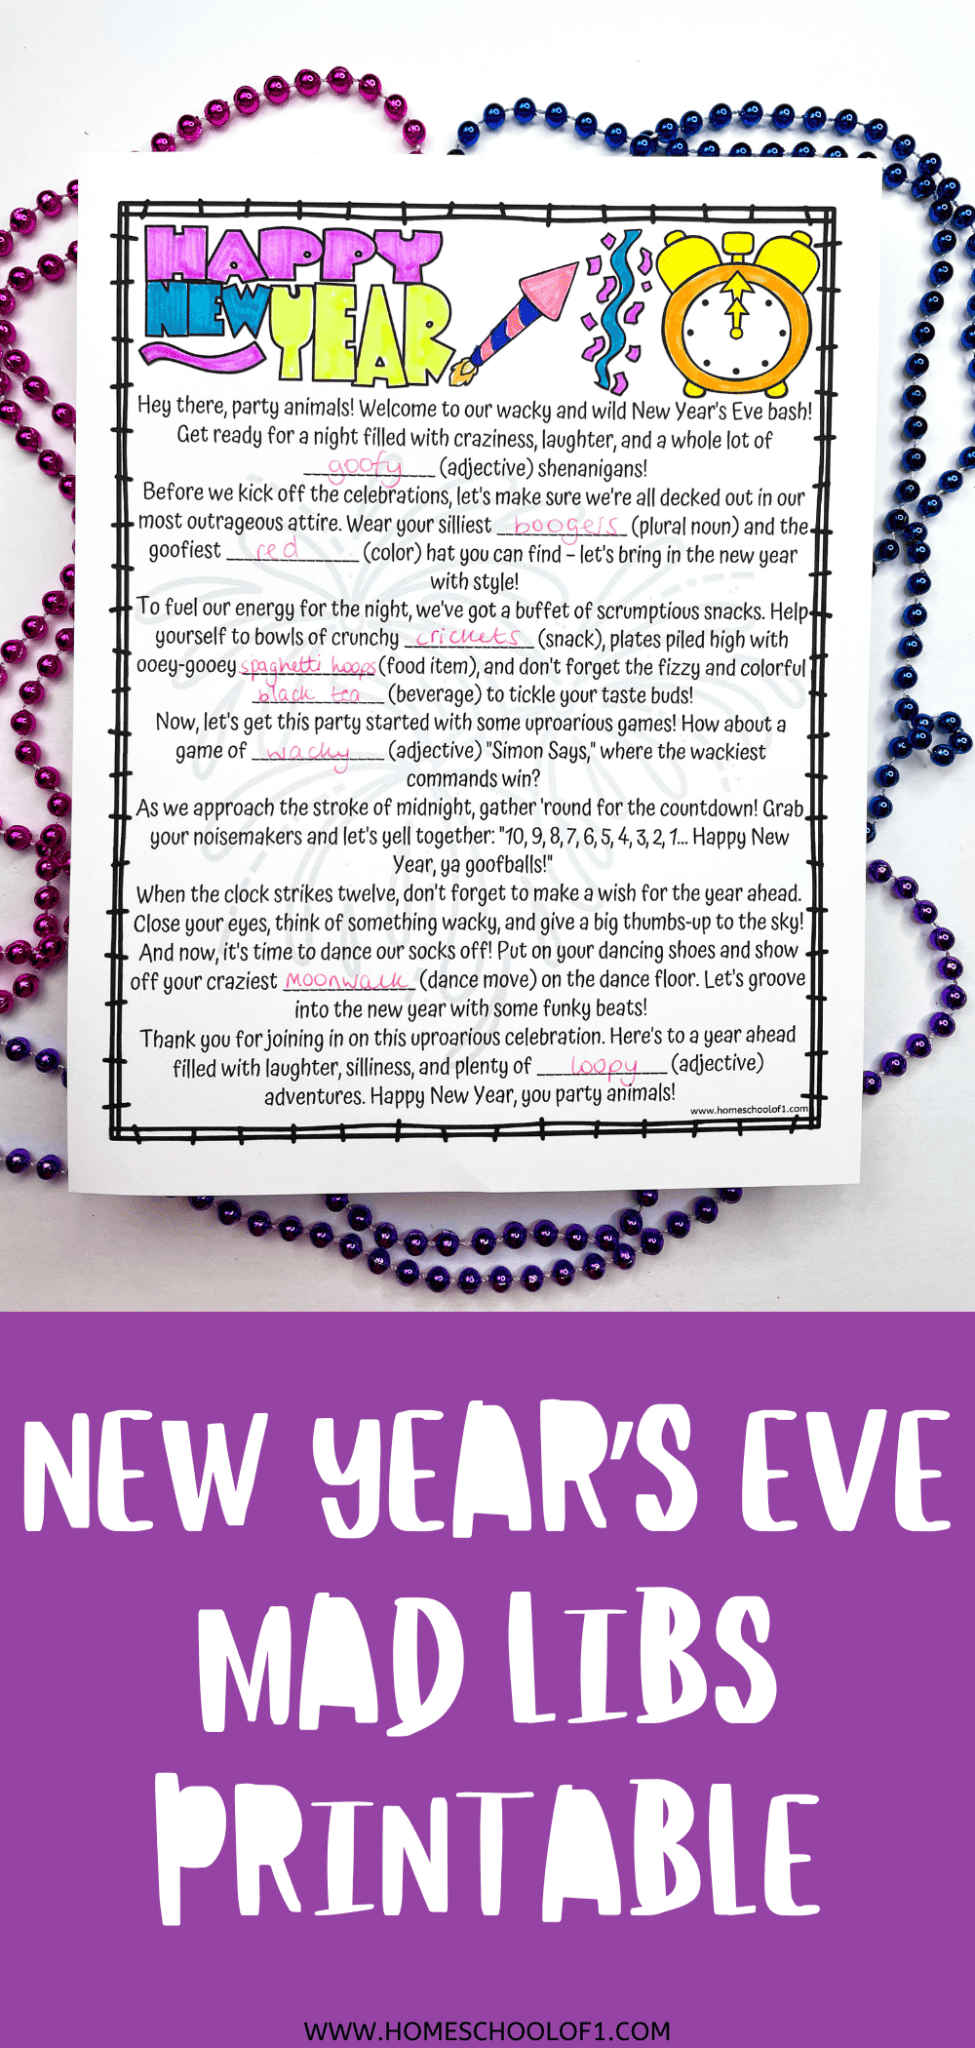 HAPPY
NEW YEAR
Hey there, party animals! Welcome to our wacky and wild New Year's Eve bash!
Get ready for a night filled with craziness, laughter, and a whole lot of
goofy (adjective) shenanigans!
Before we kick off the celebrations, let's make sure we're all decked out in our
most outrageous attire. Wear your silliest boogers (plural noun) and the
goofiest red (color) hat you can find – let's bring in the new year
with style!
To fuel our energy for the night, we've got a buffet of scrumptious snacks. Help
yourself to bowls of crunchy crickets (snack), plates piled high with
ooey-gooey spaghetti hoops (food item), and don't forget the fizzy and colorful
black tea (beverage) to tickle your taste buds!
Now, let's get this party started with some uproarious games! How about a
game of wacky (adjective) "Simon Says," where the wackiest
commands win?
As we approach the stroke of midnight, gather 'round for the countdown! Grab
your noisemakers and let's yell together: "10, 9, 8, 7, 6, 5, 4, 3, 2, 1... Happy New
Year, ya goofballs!"
When the clock strikes twelve, don't forget to make a wish for the year ahead.
Close your eyes, think of something wacky, and give a big thumbs-up to the sky!
And now, it's time to dance our socks off! Put on your dancing shoes and show
off your craziest moonwalk (dance move) on the dance floor. Let's groove
into the new year with some funky beats!
Thank you for joining in on this uproarious celebration. Here's to a year ahead
filled with laughter, silliness, and plenty of loopy (adjective)
adventures. Happy New Year, you party animals!
www.homeschoolof1.com
NEW YEAR'S EVE
MAD LIBS
PRINTABLE
WWW.HOMESCHOOLOF1.COM